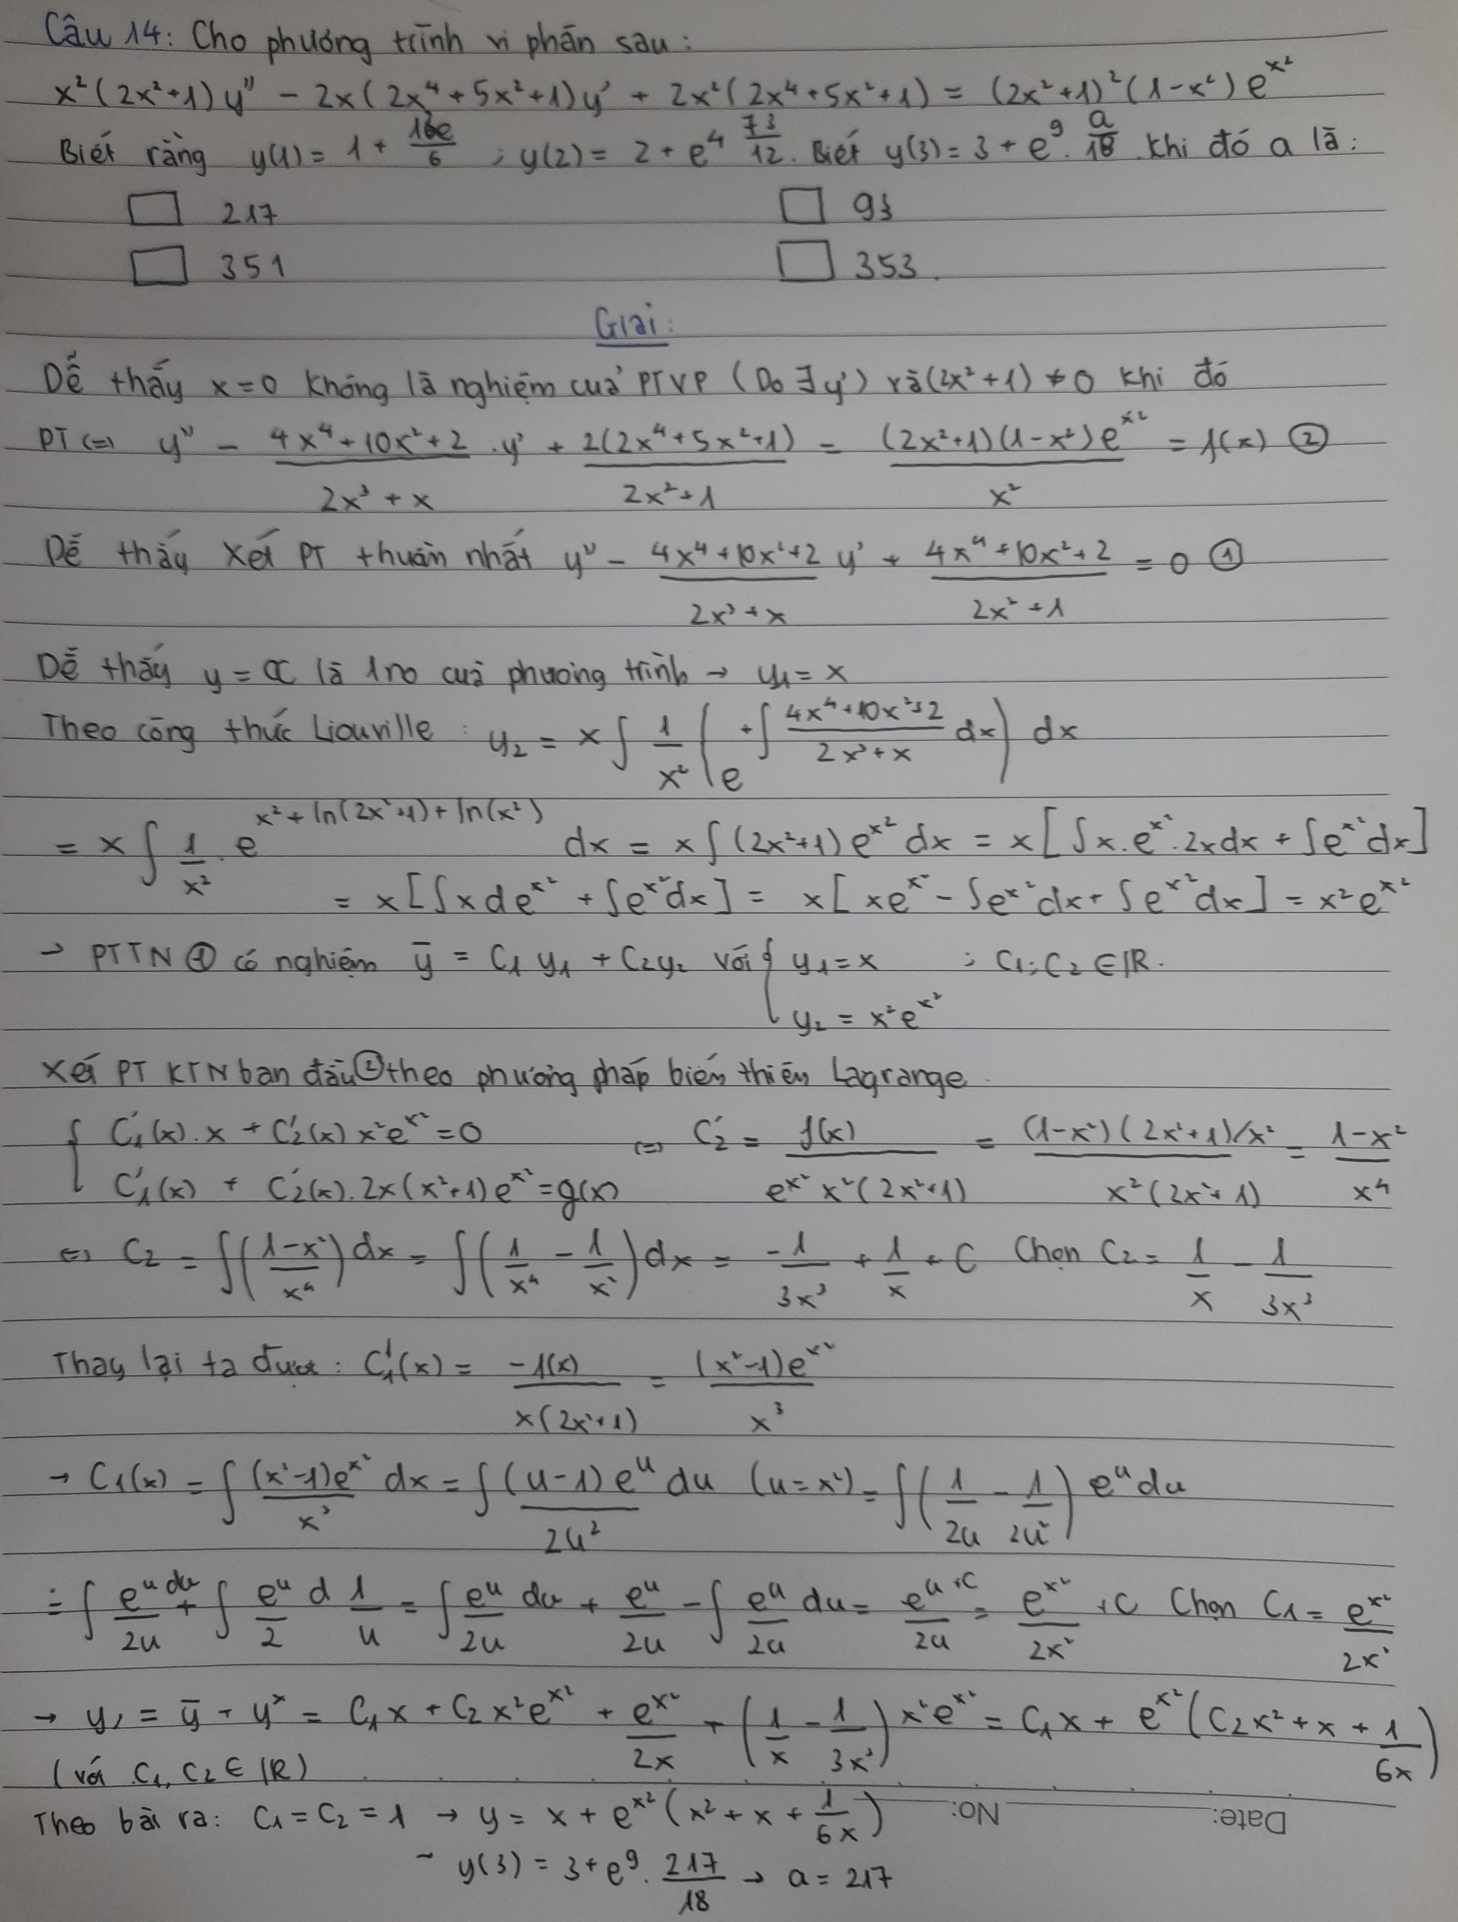 Câu 14: Cho phương trình vi phân sau:
x²(2x²+1)y'' - 2x(2x⁴+5x²+1)y' + 2x²(2x⁴+5x²+1) = (2x²+1)²(1-x²)e^(x²)
Biết rằng y(1) = 1 + 13e/6 ; y(2) = 2 + e⁴ 73/12. Biết y(3) = 3 + e⁹. a/18. Khi đó a là:
☐ 217 ☐ 93
☐ 351 ☐ 353.
Giải:
Dễ thấy x=0 không là nghiệm của PTVP (Do ∃y') và (2x²+1) ≠ 0 khi đó
PT ⇔ y'' - (4x⁴+10x²+2)/(2x³+x) .y' + 2(2x⁴+5x²+1)/(2x²+1) = (2x²+1)(1-x²)e^(x²)/x² = f(x) ②
Dễ thấy xét PT thuần nhất y'' - (4x⁴+10x²+2)/(2x³+x) y' + (4x⁴+10x²+2)/(2x²+1) = 0 ①
Dễ thấy y = x là 1 no của phương trình → y₁ = x
Theo công thức Liouville : y₂ = x∫ 1/x² (e^(+∫ (4x⁴+10x²+2)/(2x³+x) dx)) dx
= x∫ 1/x² . e^(x²+ln(2x²+1)+ln(x²)) dx = x∫(2x²+1)e^(x²)dx = x[∫x.e^(x²).2xdx + ∫e^(x²)dx]
= x[∫xde^(x²) + ∫e^(x²)dx] = x[xe^(x²) - ∫e^(x²)dx + ∫e^(x²)dx] = x²e^(x²)
→ PTTN ① có nghiệm ȳ = C₁y₁ + C₂y₂ với { y₁ = x ; C₁; C₂ ∈ ℝ.
y₂ = x²e^(x²)
Xét PT KTN ban đầu ② theo phương pháp biến thiên Lagrange.
{ C₁'(x).x + C₂'(x)x²e^(x²) = 0 ⇔ C₂' = f(x)/(e^(x²)x²(2x²+1)) = (1-x²)(2x²+1)/x² / (x²(2x²+1)) = (1-x²)/x⁴
C₁'(x) + C₂'(x).2x(x²+1)e^(x²) = g(x)
⇔ C₂ = ∫((1-x²)/x⁴)dx = ∫(1/x⁴ - 1/x²)dx = -1/3x³ + 1/x + C Chọn C₂ = 1/x - 1/3x³
Thay lại ta được: C₁'(x) = -f(x)/(x(2x²+1)) = (x²-1)e^(x²)/x³
→ C₁(x) = ∫ (x²-1)e^(x²)/x³ dx = ∫ (u-1)e^u/2u² du (u=x²) = ∫(1/2u - 1/2u²) e^u du
= ∫ e^u du/2u + ∫ e^u/2 d 1/u = ∫ e^u/2u du + e^u/2u - ∫ e^u/2u du = e^u/2u + C = e^(x²)/2x² + C Chọn C₁ = e^(x²)/2x²
→ y = ȳ + y* = C₁x + C₂x²e^(x²) + e^(x²)/2x + (1/x - 1/3x³)x²e^(x²) = C₁x + e^(x²)(C₂x² + x + 1/6x)
(với C₁, C₂ ∈ ℝ)
Theo bài ra: C₁ = C₂ = 1 → y = x + e^(x²)(x² + x + 1/6x)
No: Date:
~ y(3) = 3 + e⁹. 217/18 → a = 217